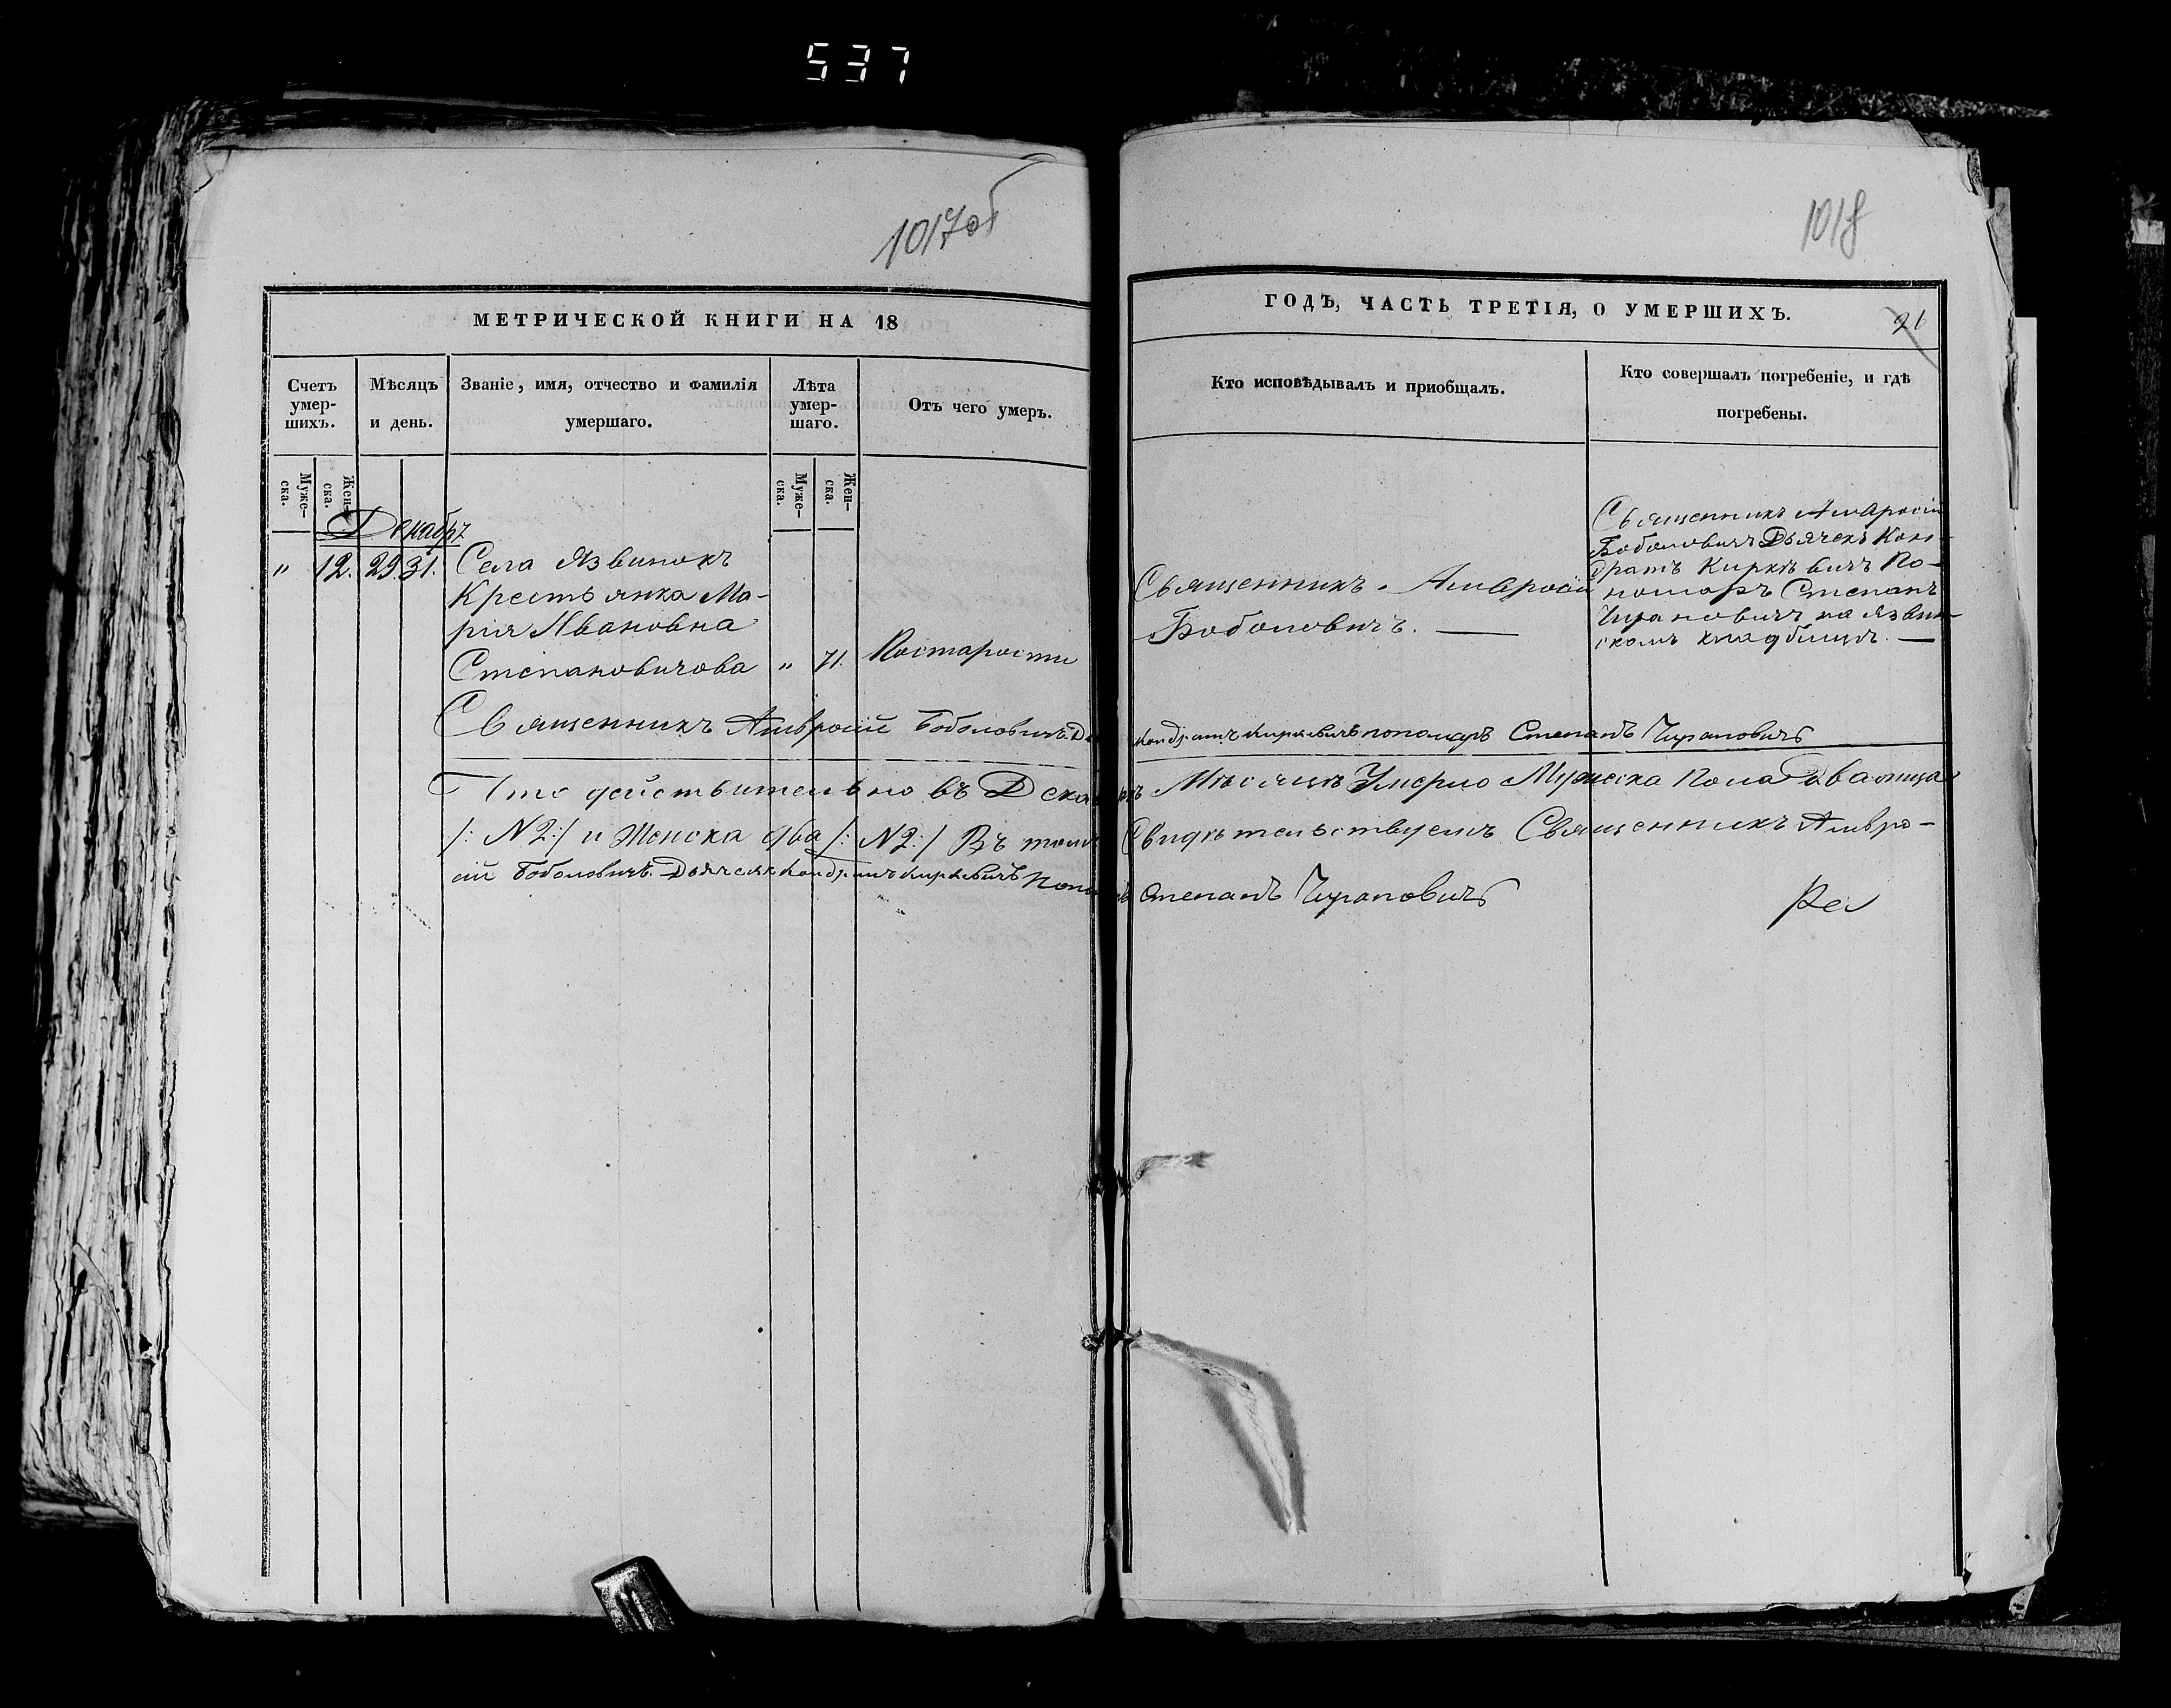 537
1017об
1018
МЕТРИЧЕСКОЙ КНИГИ НА 18
ГОДЪ, ЧАСТЬ ТРЕТІЯ, О УМЕРШИХЪ.
21
Счетъ умер-
шихъ.
Мѣсяцъ
и день.
Званіе, имя, отчество и фамилія
умершаго.
Лѣта
умер-
шаго.
Отъ чего умеръ.
Кто исповѣдывалъ и приобщалъ.
Кто совершалъ погребеніе, и гдѣ
погребены.
Муже-
ска.
Жен-
ска.
Муже-
ска.
Жен-
ска.
Декабрь
" 12. 29. 31. Села Язвинокъ
Крестьянка Ма-
рія Ивановна
Степановичова " 71. Постарости
Священникъ Амвросій
Боболовичъ.
Священникъ Амвросій
Боболовичъ Дьячекъ Кон-
дратъ Киркевичъ По-
номарь Степанъ
Чирановичъ на Язвин-
скомъ кладбищѣ.
Священникъ Амвросій Боболовичъ Кондратъ Киркевичъ пономарь Степанъ Чирановичъ
Что действительно въ Декабрѣ Мѣсяцѣ Умерло Мужеска Пола два лица
/: N2:/ и Женска два /: N2:/ Въ томъ Свидѣтельствуемъ Священникъ Амвро-
сій Боболовичъ. Дьячекъ Кондратъ Киркевичъ Пономарь Степанъ Чирановичъ